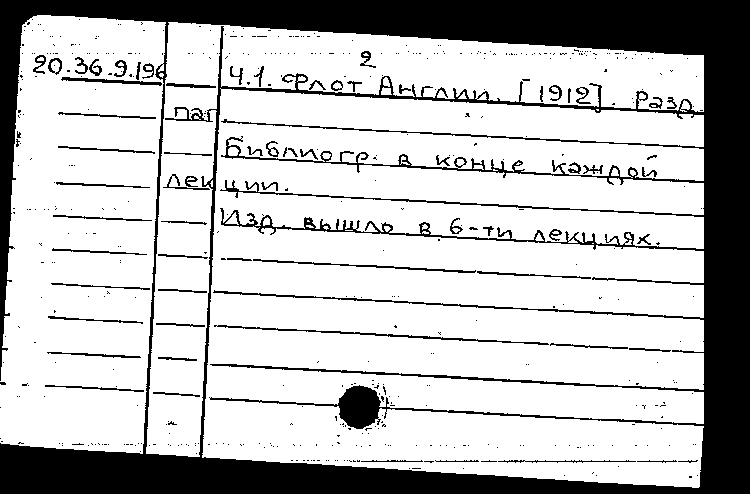 2
20.36.9.196 Ч.1. Флот Англии. [1912]. Разд.
паг.
Библиогр. в конце каждой
лекции.
Изд. вышло в 6-ти лекциях.